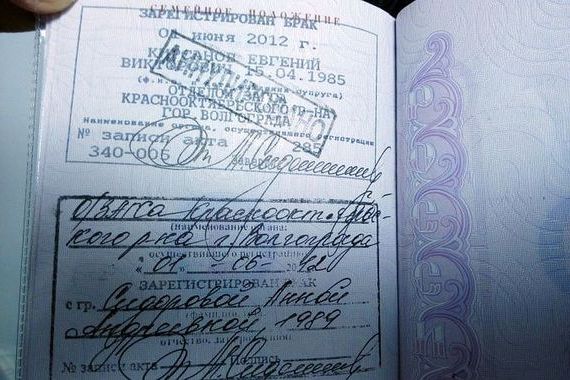 СЕМЕЙНОЕ ПОЛОЖЕНИЕ
ЗАРЕГИСТРИРОВАН БРАК
июня 2012 г.
ЕВГЕНИЙ
ВИКТОРОВИЧ 15.04.1985
ОТДЕЛ ЗАГСА
КРАСНООКТЯБРЬСКОГО Р-НА
ГОР. ВОЛГОГРАДА
Наименование органа, осуществившего регистрации
№ записи акта 285
340-006
О/ЗАГСа Краснооктябрь-
ского р-на г. Волгограда
(наименование органа,
осуществившего регистрацию)
«01» 06
ЗАРЕГИСТРИРОВАН БРАК
с гр. Сидоровой Анной
Андреевной, 1989
отчество, дата рождения
№ записи акта Подпись